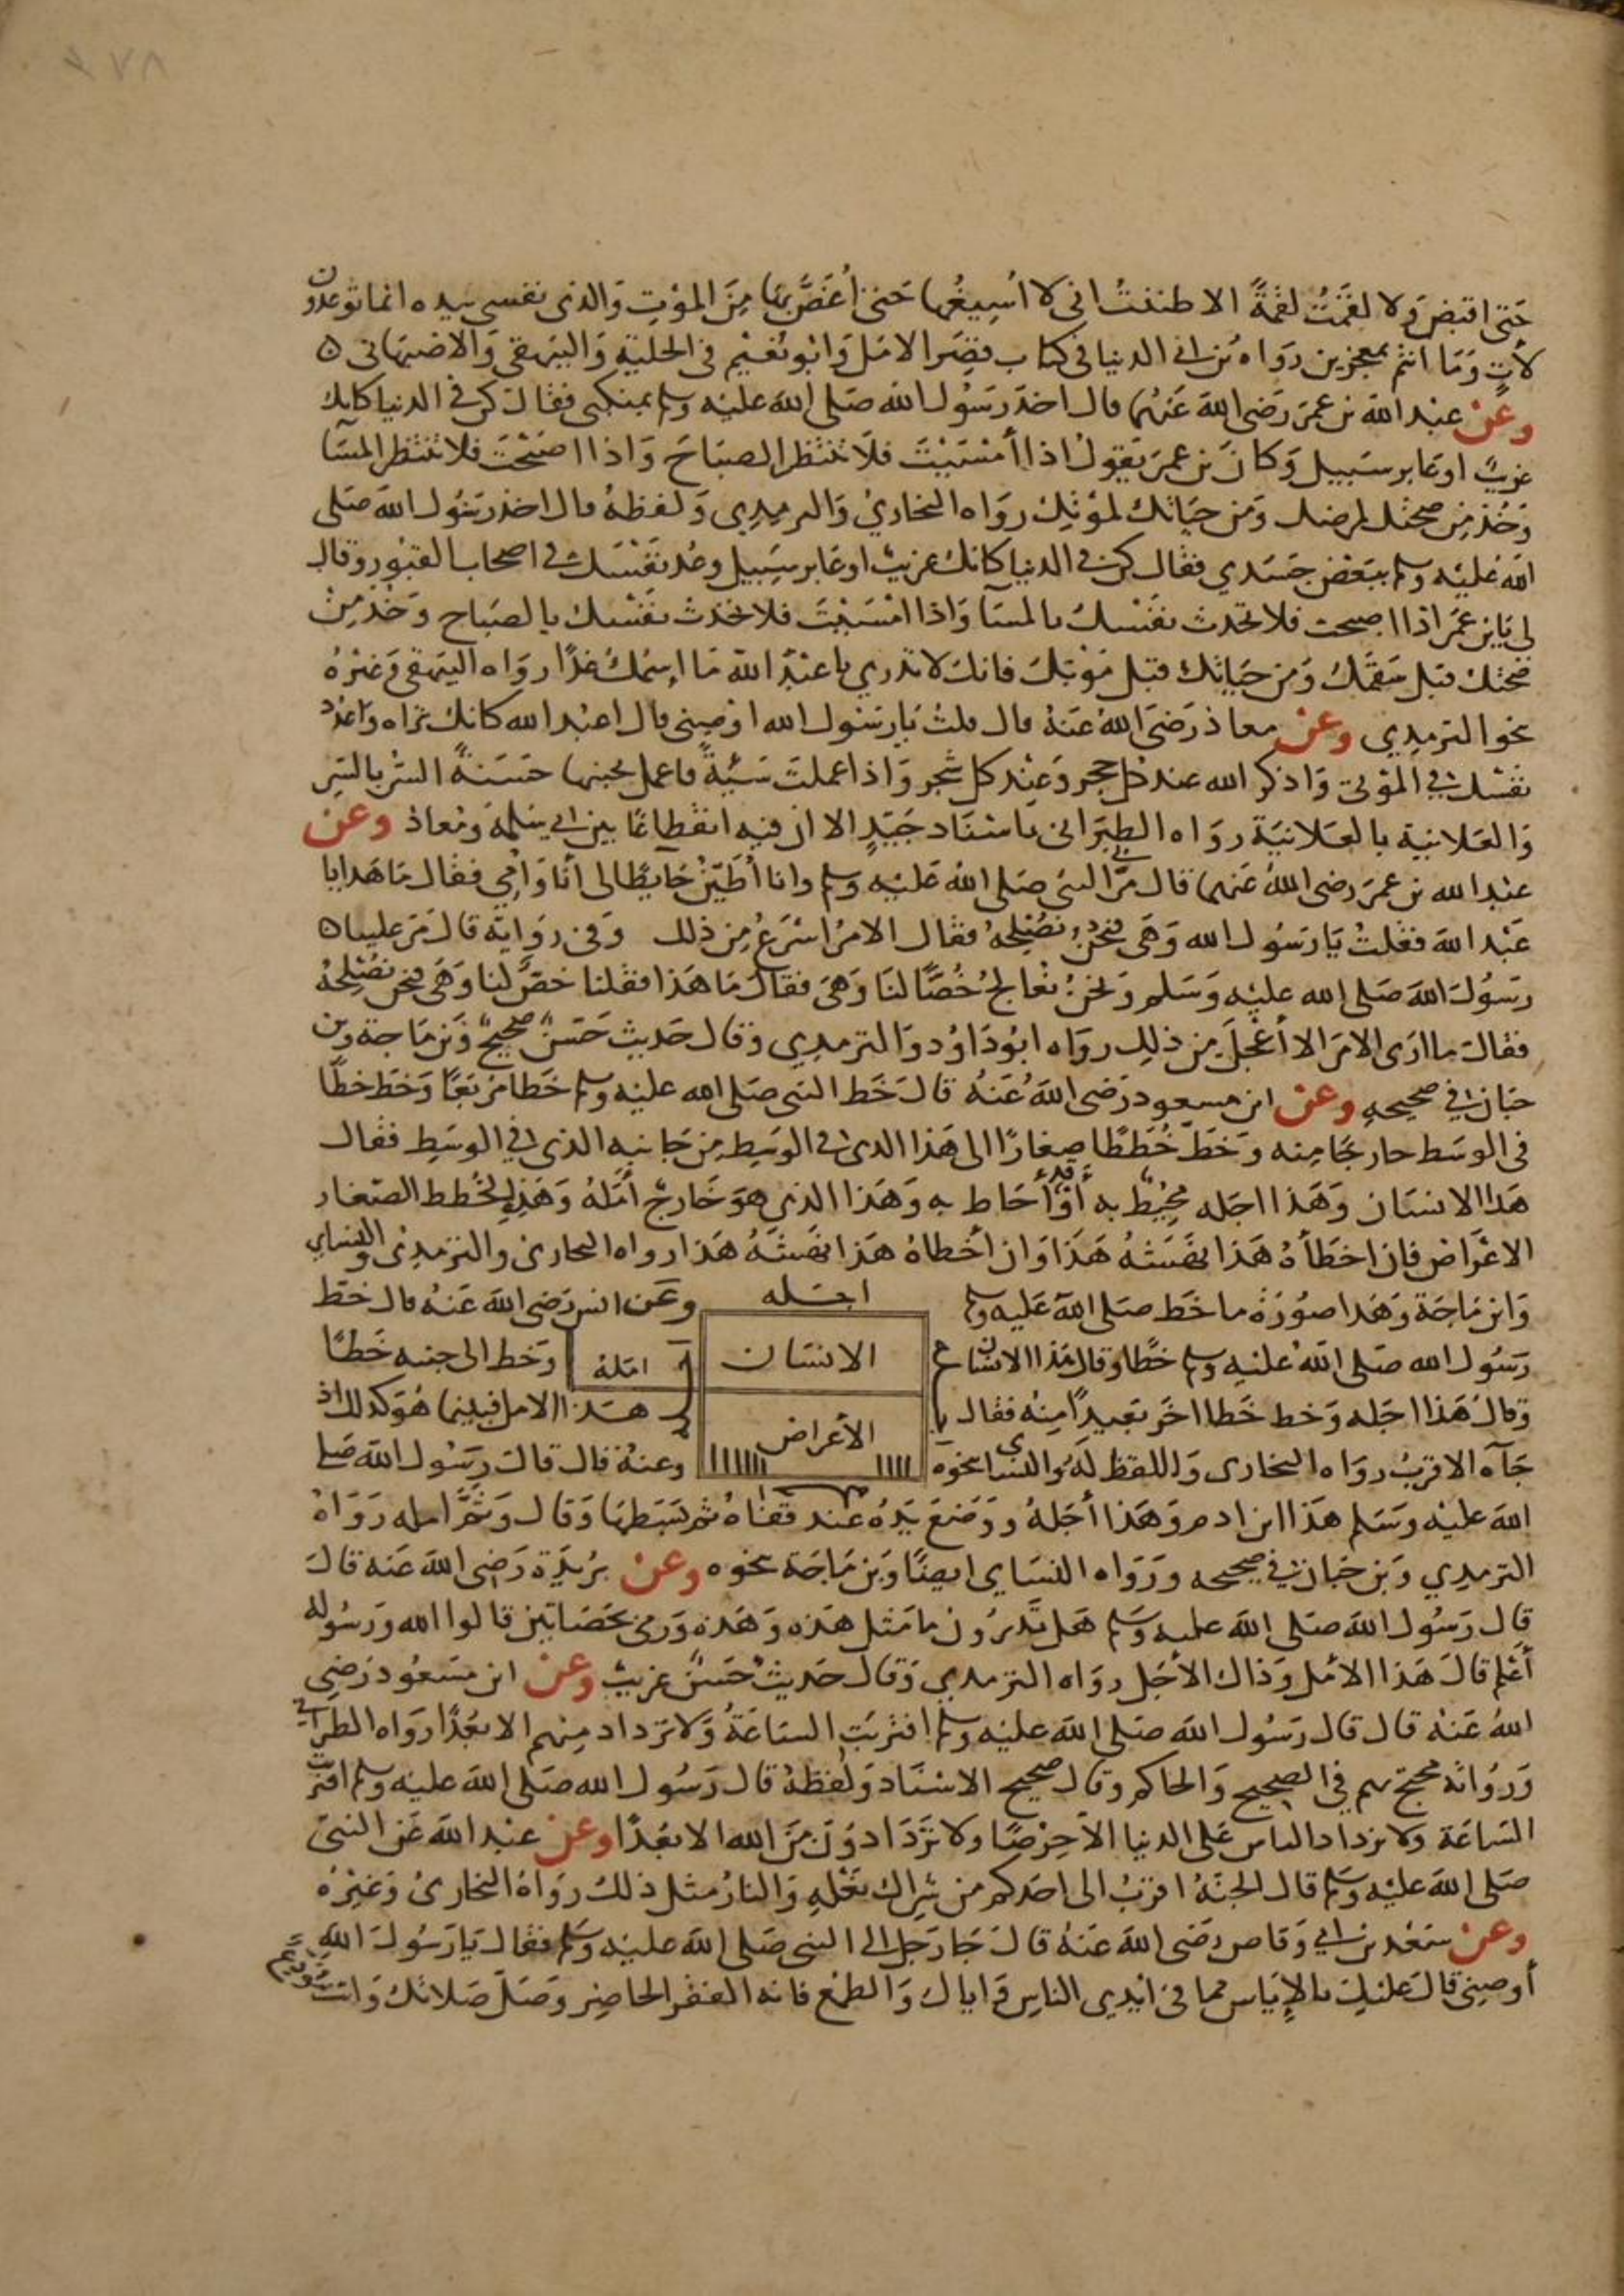 ٢٧٨
حَتى اقبضَ ولا لقمْتُ لقمةً الا ظننتُ انى لا اُسِيغُها حَتىٰ اُغَصَّ بهَا مِنَ الموْتِ وَالذى نفسى بيده انما توعدون
لآتٍ وَمَا انتمْ بمعجزين رواه بن ابى الدنيا فى كتاب قِصَر الامَل وَابو نعَيْم فى الحليَةِ وَالبيهقى وَالاصْبهَانى ه
وعَنْ عبْد الله بن عمرَ رَضى الله عَنهُما قال اخذ رَسُول الله صَلى الله عليْه وسلم بمنكبى فقال كن فى الدنيا كانك
غريبٌ او عَابر سَبيل وَكانَ بن عمرَ يَقولُ اذا أمْسَيْتَ فلَا تنتَظر الصبَاحَ وَاذا اصْبَحْتَ فلا تنتظر المسَآ
وَخُذ مِن صحتك لمرضك وَمن حَيَاتك لموْتِك رَوَاه البخاريُ وَالترمِدي وَلفظهُ قال اخذ رسُول الله صَلى
الله عَليْه وسلم ببَعْض جَسَدي فقال كن فى الدنيا كانك غريبٌ او عَابر سَبيل وعُد نفْسَك فى اصحاب القبُور وقال
لى يَا بن عمَر اذا اصبحت فلا تحدث نفسك بالمسَآ وَاذا امْسَيْتَ فلا تحَدث نفْسَك بالصبَاح وَخذ مِنْ
صحَّتك قبل سَقمِكَ وَمن حَيَاتك قبْل مَوْتِكَ فانك لا تدْري يا عَبْدَ الله مَا اسْمُكَ غدًا رواه البيهقى وَغيْرُهُ
نحو الترمِدي وعَنْ معاذ رَضَى الله عَنهُ قال قلتُ يَا رسُول الله اوْصِنى قال اعبُد الله كانك تراه واعْدُد
نفْسَك فى الموْتى وَاذكر الله عند كل حجر وَعِند كل شجر وَاذا عملتَ سَيئةً فاعمل بجنبهَا حَسَنةً السِّرُ بالسّر
وَالعَلانية بالعَلانيَة روَاه الطبَرَانى باسْنَاد جَيّدٍ الا ان فيه انقطاعًا بين ابى سَلمة ومُعاذ وعَنْ
عبْد الله بن عمرَ رضى الله عَنهما قال مَرَّ بى النبى صَلى الله عَليْه وسلم وانا أُطَيّنُ حَايطًا لى أنا وَأمِّي فقال مَا هَدا يا
عَبْد الله فقلتُ يَا رسُول الله وَهَى فنحنُ نُصْلِحُه فقال الامرُ اسْرَعُ مِن ذلك وَفى رِوَايَة قال مَرَّ علينا ه
رسُول الله صَلى الله عليْه وَسَلم وَنحنُ نُعَالجُ خُصًّا لنَا وَهَى فقال مَا هَذا فقلنا خصٌّ لنا وَهَى فنحن نُصْلِحُهُ
فقال ما ارَى الامرَ الا أعْجَلَ مِن ذلك روَاه ابُو دَاوُد وَالترمِدي وقال حَديث حَسَنٌ صحيحٌ وَبن مَاجة وبن
حبَان فى صحيحهِ وعَنْ ابن مسعود رَضى اللهُ عَنهُ قالَ خَط النبى صَلى الله عليه وسلم خَطا مُرَبَّعًا وَخط خطًّا
فى الوسَط خارجًا مِنه وَخَطّ خُطَطًا صِغارًا الى هَذا الذى فى الوسَطِ مِن جَانبه الذى فى الوسَطِ فقال
هَذا الانسَان وَهَذا اجَله مُحِيْطٌ به أوْ قد أحَاط به وَهَذا الذى هُوَ خَارجٌ أَمَلهُ وَهَذِه الخُطط الصّغار
الاعْرَاض فان اخطَأهُ هَذا نهَشَهُ هَذَا وَان أخطاهُ هَذا نهَشَهُ هَذا رواه البخارى والترمدى والنسَاي
وَابن مَاجَة وَهَذا صوُرَة ما خَط صَلى الله عَليه وسلم
اجَله
وعَن انس رَضى الله عَنهُ قال خَطّ
رَسُول الله صَلى الله عليْه وسلم خطًا وَقال هَذا الانسَان
الانسَان
امَلهُ
وَخط الى جنبه خَطًا
وقال هَذا اجَله وَخط خَطا اخَر بَعيدًا مِنه فقال
الأعراض
هَذا الامل فبينما هُوَ كذلك اذ
جَآه الاقربُ روَاه البخارى وَاللفظ لهُ والنسَاى نحوَه
وعنهُ قال قال رسُول الله صَلى
الله عليْه وسَلم هَذا ابن ادم وَهَذا أجَلهُ وَوَضعَ يَدَهُ عند قفَاهُ ثم بَسَطهَا وَقال وَثَمَّ امله رَوَاهُ
الترمِدي وَبن حبان فى صحيحه ورَوَاه النسَاى ايضًا وَبن مَاجَة نحوه وعَنْ بُريْدة رَضى الله عَنه قال
قال رَسُول الله صَلى الله عليه وسَلم هَل تَدْرُونَ مَا مَثل هَذه وَهَذه وَرمى بحَصَاتين قالوا الله وَرسُوله
أعْلم قال هَذا الأمَل وَذاك الأجَل رواه الترمدي وَقال حَديثٌ حَسَنٌ غريب وعَنْ ابن مسعُود رَضى
اللهُ عَنهُ قال قال رَسُول الله صَلى الله عليْه وسلم اقترَبَتِ السَاعَة وَلا تزداد مِنهم الا بعُدًا روَاه الطبرانى
وَرُوَاته محتج بهم فى الصحيح وَالحاكم وقال صحيح الاسْنَاد وَلفظهُ قال رَسُول الله صَلى الله عليه وسلم اقتربت
السَاعَة وَلا يزداد الناس عَلى الدنيا الا حِرْصًا ولا يَزْدَادوُنَ مِنَ الله الا بعُدًا وعَنْ عبْد الله عَن النبىّ
صَلى الله عليْه وسَلم قال الجنةُ اقرَبُ الى احَدكم من شِرَاك نعْلِهِ وَالنارُ مثل ذلك روَاهُ البخارىُ وَغيْرُهُ
وعَنْ سَعْد بن ابى وَقاص رَضى الله عَنهُ قال جَا رَجل الى النبى صَلى الله عليْه وسَلم فقال يَا رَسُولَ الله
أوصِنى قال عَليك بالإيَاس مما فى ايْدِى الناسِ وَاياك وَالطمَع فانه الفقر الحاضِر وَصَلّ صَلاتك وَانت